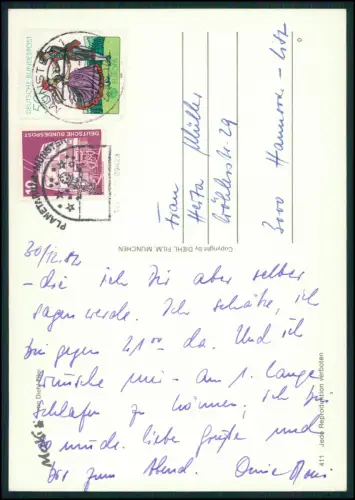 DEUTSCHE BUNDESPOST
DEUTSCHE BUNDESPOST
10
PLANETARIUM
Frau
Herta Müller
3000 Hannover-
Copyright by DIEHL FILM, MÜNCHEN
30/12.82
- die ich Dir aber selber
sagen werde. Ich schätze, ich
bin gegen 21 00 da. Und ich
wünsche mir - am 1. lange
schlafen zu können; ich bin
so müde. Liebe Grüße und
bis zum Abend. Deine
Mecki
411 Jede Reproduktion verboten